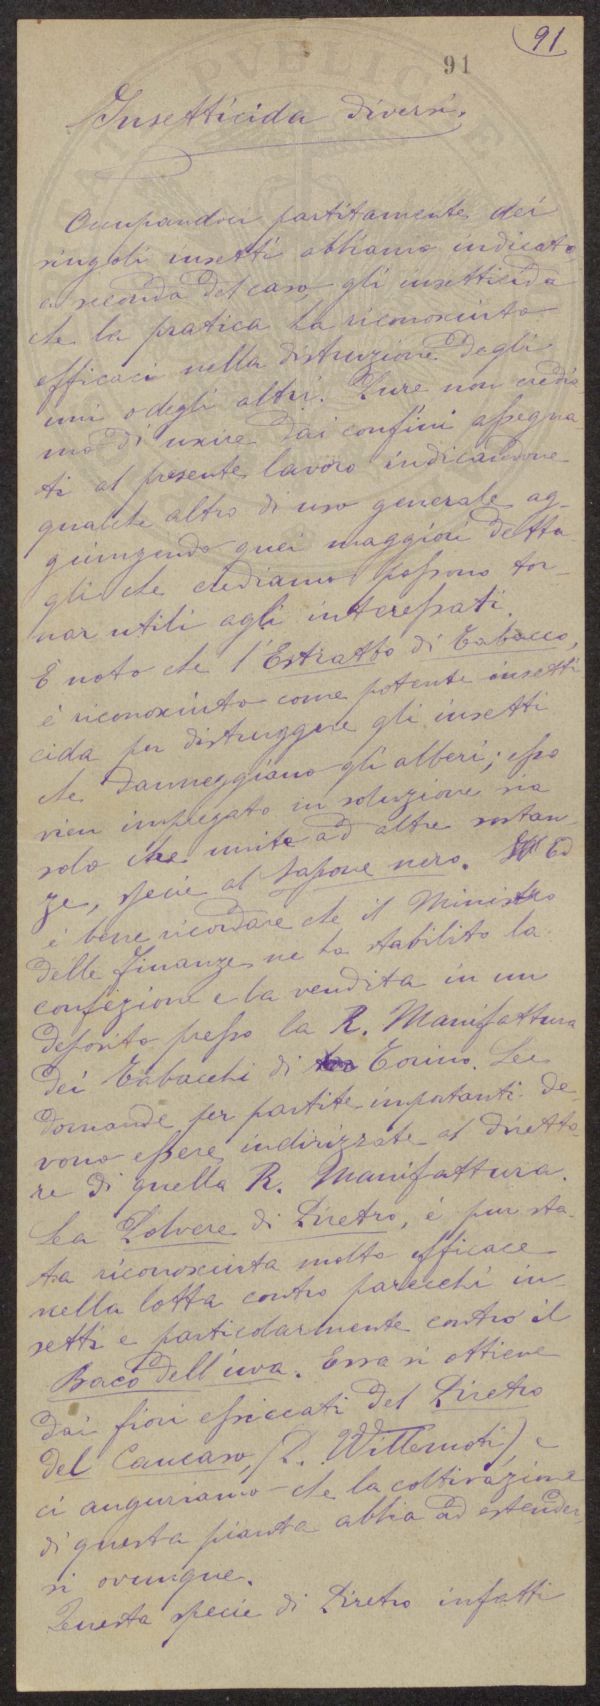 91
91
Insetticida diversi.
Occupandoci partitamente dei
singoli insetti abbiamo indicato
a seconda del caso, gli insetticida
che la pratica ha riconosciuto
efficaci nella distruzione degli
uni o degli altri. Pure non credia
mo di uscire dai confini assegna
ti al presente lavoro indicandone
qualche altro di uso generale ag-
giungendo quei maggiori detta
gli che crediamo possono tor-
nar utili agli interessati.
È noto che l'Estratto di Tabacco,
è riconosciuto come potente insetti
cida per distruggere gli insetti
che danneggiano gli alberi; esso
vien impiegato in soluzione sia
solo che unito ad altre sostan-
ze, specie al sapone nero. Ed
è bene ricordare che il Ministro
delle Finanze ne ha stabilito la
confezione e la vendita in un
deposito presso la R. Manifattura
dei Tabacchi di Torino. Le
domande per partite importanti de-
vono essere indirizzate al diretto-
re di quella R. Manifattura.
La Polvere di Piretro, è pur sta-
ta riconosciuta molto efficace
nella lotta contro parecchi in-
setti e particolarmente contro il
Baco dell'uva. Essa si ottiene
dai fiori essiccati del Piretro
del Caucaso, (P. Willemoti) e
ci auguriamo che la coltivazione
di questa pianta abbia ad estender-
si ovunque.
Questa specie di Piretro infatti